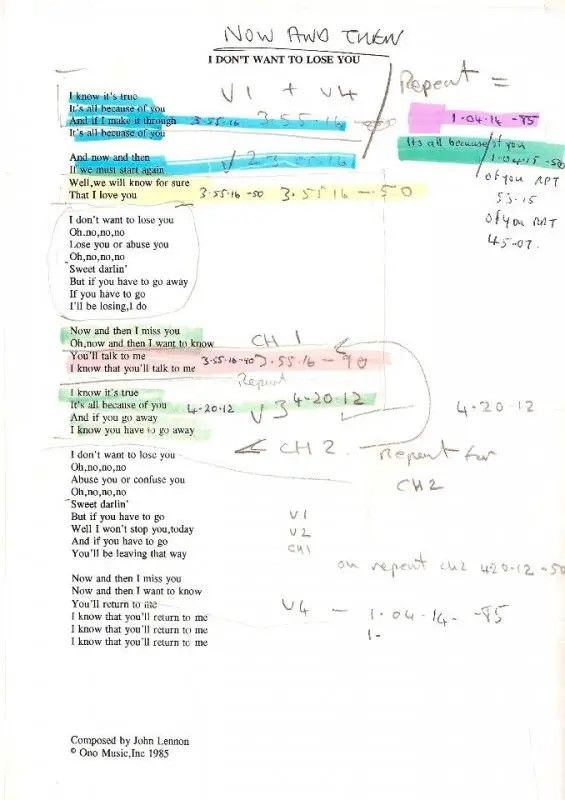 NOW AND THEN
I DON'T WANT TO LOSE YOU
V1 + V4
Repeat =
I know it's true
It's all because of you
And if I make it through 3-55-16 3-55-16-
1-04-14-85
It's all becuase of you
Its all because of you
1-04-15-50
And now and then
If we must start again V2 3-55-16
of you RPT
Well,we will know for sure
53-15
That I love you 3-55-16-50 3-55-16-50
of you RPT
45-07.
I don't want to lose you
Oh,no,no,no
Lose you or abuse you
Oh,no,no,no
Sweet darlin'
But if you have to go away
If you have to go
I'll be losing,I do
Now and then I miss you
Oh,now and then I want to know CH 1
You'll talk to me 3-55-16-90 3-55-16-90
I know that you'll talk to me
Repeat
I know it's true
It's all because of you 4-20-12 V3 4-20-12 4-20-12
And if you go away
I know you have to go away
CH 2.
I don't want to lose you
Repeat for
Oh,no,no,no
CH2
Abuse you or confuse you
Oh,no,no,no
Sweet darlin'
But if you have to go V1
Well I won't stop you,today V2
And if you have to go CH1
You'll be leaving that way
on repeat CH2 420-12-50
Now and then I miss you
Now and then I want to know
You'll return to me V4 - 1-04-14--85
I know that you'll return to me
I know that you'll return to me 1-
I know that you'll return to me
Composed by John Lennon
© Ono Music,Inc 1985